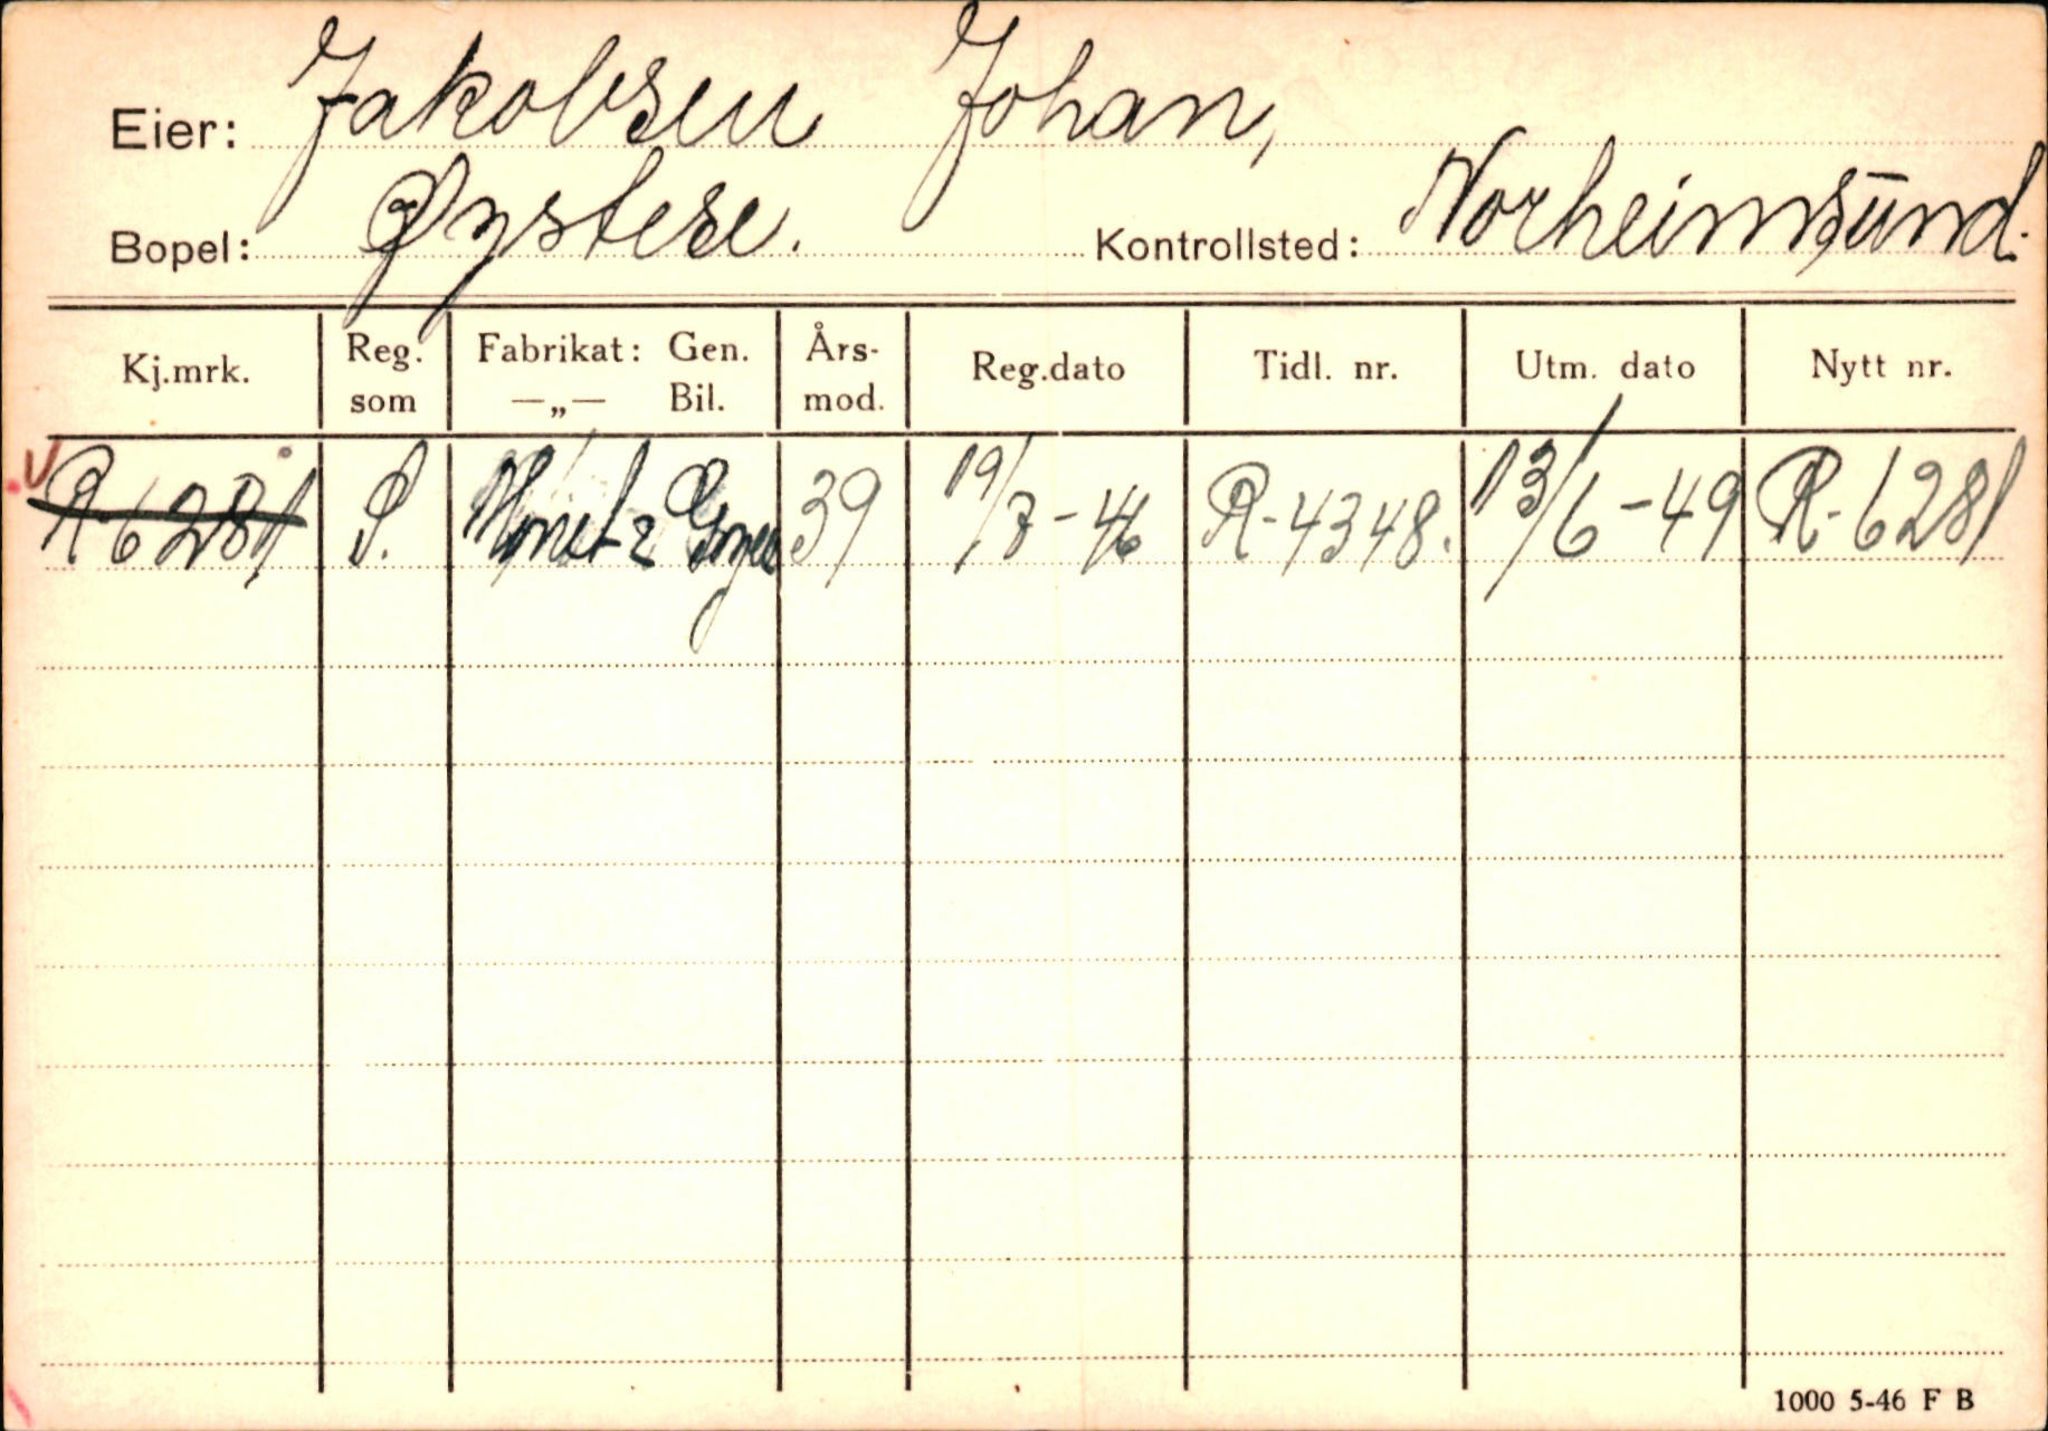 Eier: Jakobsen Johan,
Bopel: Øystese. Kontrollsted: Norheimsund.
Kj.mrk. Reg. som Fabrikat: Gen. —„— Bil. Års- mod. Reg.dato Tidl. nr. Utm. dato Nytt nr.
R-6281 P. 39 19/7-46 R-4348. 13/6-49 R-6281
1000 5-46 F B